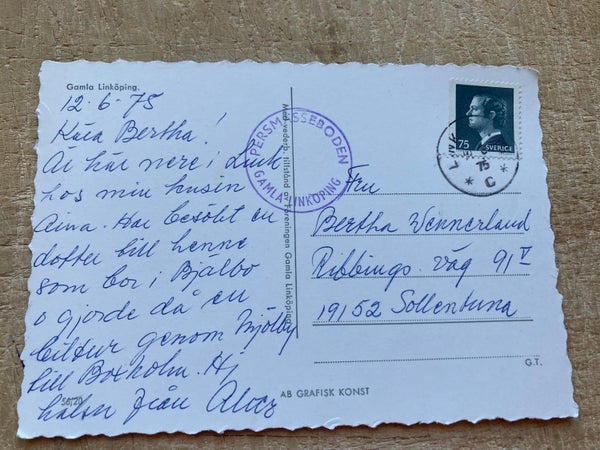 Gamla Linköping.
12.6-75
Kära Bertha!
Är här nere i Link
hos min kusin
Aina. Har besökt en
dotter till henne
som bor i Bjälbo
o gjorde då en
biltur genom Mjölby
till Boxholm. Hj
hälsn från
56/20
Med vederb. tillstånd av Föreningen Gamla Linköping
AB GRAFISK KONST
PERSMÄSSEBODEN
GAMLA-LINKÖPING
75 SVERIGE
75
C
Fru
Bertha Wennerland
Ribbings väg 91 V
19152 Sollentuna
G.T.